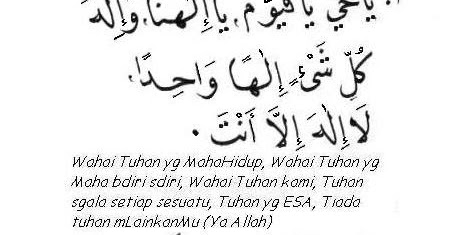 يَا حَيُّ يَا قَيُّوْمُ، يَا إِلٰهَنَا، وَإِلٰهَ
كُلِّ شَيْءٍ إِلٰهًا وَاحِدًا،
لَا إِلٰهَ إِلَّا أَنْتَ.
Wahai Tuhan yg MahaHidup, Wahai Tuhan yg
Maha bdiri sdiri, Wahai Tuhan kami, Tuhan
sgala setiap sesuatu, Tuhan yg ESA, Tiada
tuhan mLainkanMu (Ya Allah)